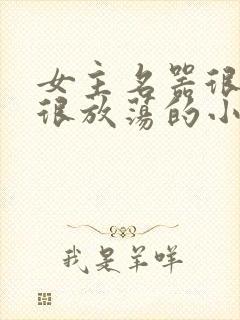 女主名器很
很放荡的小
我是羊咩